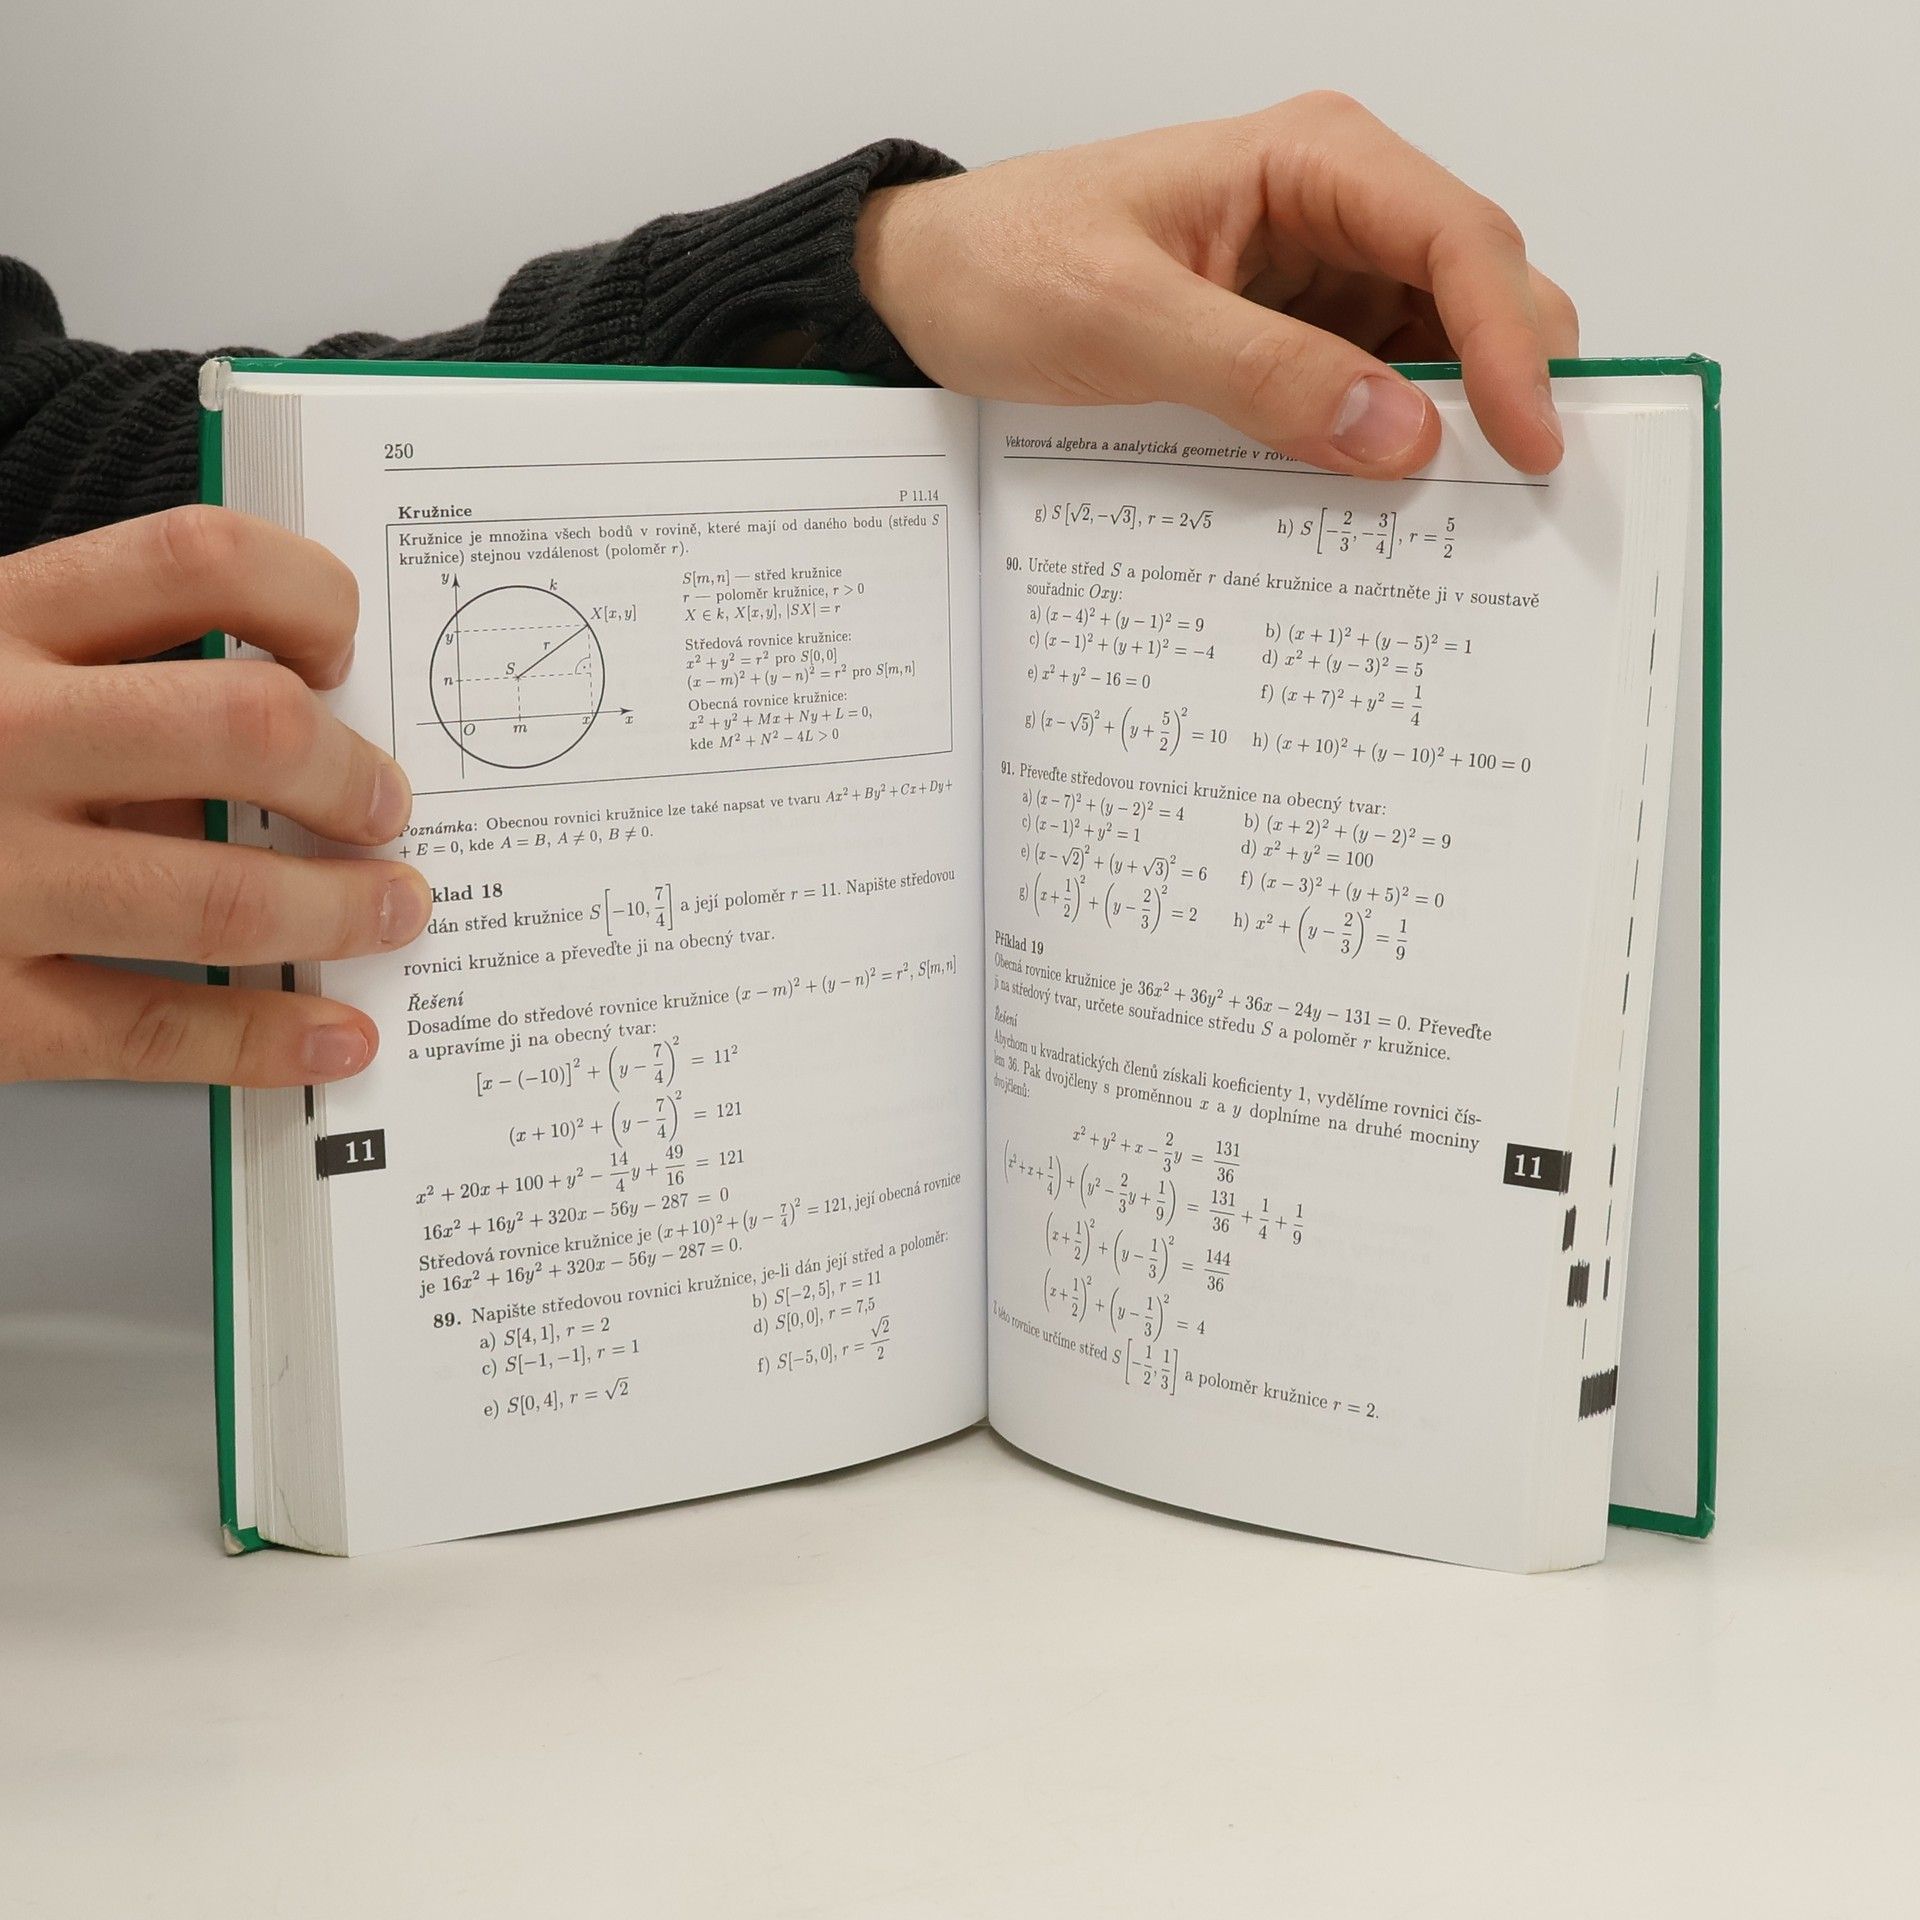 250
Kružnice
P 11.14
Kružnice je množina všech bodů v rovině, které mají od daného bodu (středu S
kružnice) stejnou vzdálenost (poloměr r).
y
k
X[x, y]
y
r
S
n
O
m
x
x
S[m, n] — střed kružnice
r — poloměr kružnice, r > 0
X ∈ k, X[x, y], |SX| = r
Středová rovnice kružnice:
x² + y² = r² pro S[0, 0]
(x − m)² + (y − n)² = r² pro S[m, n]
Obecná rovnice kružnice:
x² + y² + Mx + Ny + L = 0,
kde M² + N² − 4L > 0
Poznámka: Obecnou rovnici kružnice lze také napsat ve tvaru Ax² + By² + Cx + Dy +
+ E = 0, kde A = B, A ≠ 0, B ≠ 0.
klad 18
dán střed kružnice S[−10, 7/4] a její poloměr r = 11. Napište středovou
rovnici kružnice a převeďte ji na obecný tvar.
Řešení
Dosadíme do středové rovnice kružnice (x − m)² + (y − n)² = r², S[m, n]
a upravíme ji na obecný tvar:
[x − (−10)]² + (y − 7/4)² = 11²
(x + 10)² + (y − 7/4)² = 121
x² + 20x + 100 + y² − 14/4 y + 49/16 = 121
16x² + 16y² + 320x − 56y − 287 = 0
Středová rovnice kružnice je (x + 10)² + (y − 7/4)² = 121, její obecná rovnice
je 16x² + 16y² + 320x − 56y − 287 = 0.
89. Napište středovou rovnici kružnice, je-li dán její střed a poloměr:
a) S[4, 1], r = 2 b) S[−2, 5], r = 11
c) S[−1, −1], r = 1 d) S[0, 0], r = 7,5
e) S[0, 4], r = √2 f) S[−5, 0], r = √2/2
11
Vektorová algebra a analytická geometrie v
g) S[√2, −√3], r = 2√5 h) S[−2/3, −3/4], r = 5/2
90. Určete střed S a poloměr r dané kružnice a načrtněte ji v soustavě
souřadnic Oxy:
a) (x − 4)² + (y − 1)² = 9 b) (x + 1)² + (y − 5)² = 1
c) (x − 1)² + (y + 1)² = −4 d) x² + (y − 3)² = 5
e) x² + y² − 16 = 0 f) (x + 7)² + y² = 1/4
g) (x − √5)² + (y + 5/2)² = 10 h) (x + 10)² + (y − 10)² + 100 = 0
91. Převeďte středovou rovnici kružnice na obecný tvar:
a) (x − 7)² + (y − 2)² = 4 b) (x + 2)² + (y − 2)² = 9
c) (x − 1)² + y² = 1 d) x² + y² = 100
e) (x − √2)² + (y + √3)² = 6 f) (x − 3)² + (y + 5)² = 0
g) (x + 1/2)² + (y − 2/3)² = 2 h) x² + (y − 2/3)² = 1/9
Příklad 19
Obecná rovnice kružnice je 36x² + 36y² + 36x − 24y − 131 = 0. Převeďte
ji na středový tvar, určete souřadnice středu S a poloměr r kružnice.
Řešení
Abychom u kvadratických členů získali koeficienty 1, vydělíme rovnici čís-
lem 36. Pak dvojčleny s proměnnou x a y doplníme na druhé mocniny
dvojčlenů:
x² + y² + x − 2/3 y = 131/36
(x² + x + 1/4) + (y² − 2/3 y + 1/9) = 131/36 + 1/4 + 1/9
(x + 1/2)² + (y − 1/3)² = 144/36
(x + 1/2)² + (y − 1/3)² = 4
Z této rovnice určíme střed S[−1/2, 1/3] a poloměr kružnice r = 2.
11